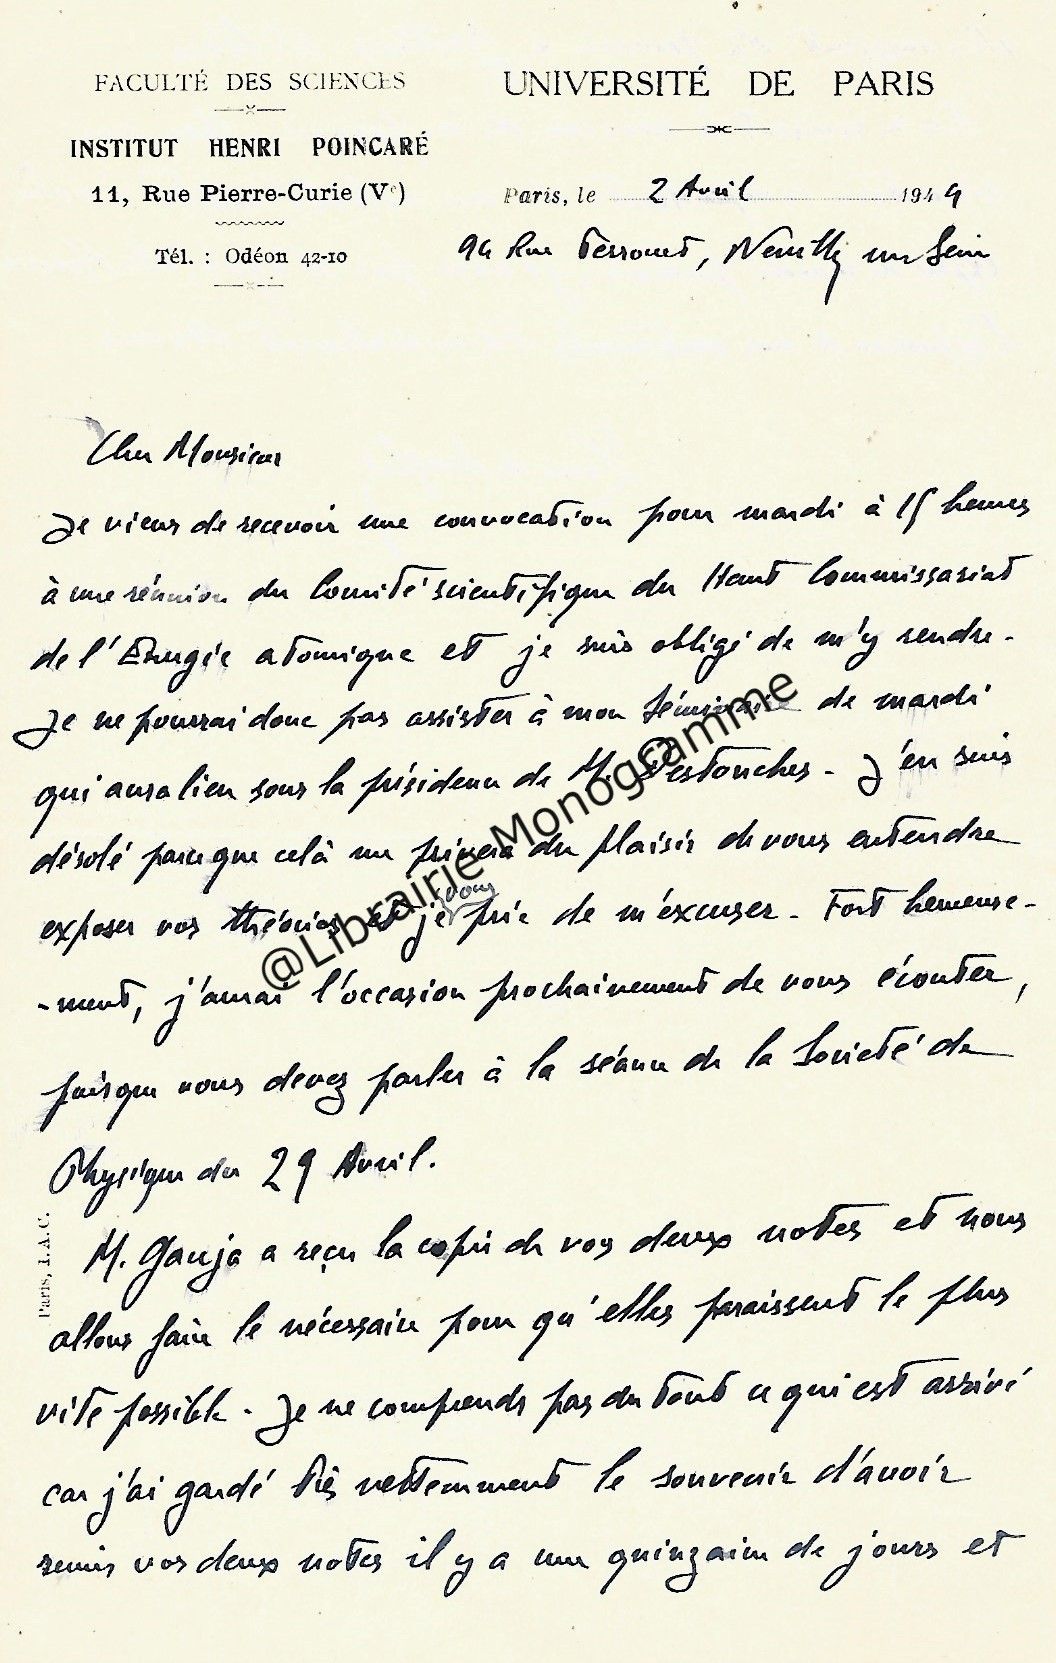 FACULTÉ DES SCIENCES
INSTITUT HENRI POINCARÉ
11, Rue Pierre-Curie (Vᵉ)
Tél. : Odéon 42-10
UNIVERSITÉ DE PARIS
Paris, le 2 Avril 1949
94 Rue Perronet, Neuilly sur Seine
Cher Monsieur
Je viens de recevoir une convocation pour mardi à 15 heures
à une réunion du Comité scientifique du Haut Commissariat
de l'Énergie atomique et je suis obligé de m'y rendre.
Je ne pourrai donc pas assister à mon Séminaire de mardi
qui aura lieu sous la présidence de M. Destouches. J'en suis
désolé parce que celà me privera du plaisir de vous entendre
exposer vos théories et je vous prie de m'excuser. Fort heureuse-
-ment, j'aurai l'occasion prochainement de vous écouter,
puisque vous devez parler à la séance de la Société de
Physique du 29 Avril.
M. Gauja a reçu la copie de vos deux notes et nous
allons faire le nécessaire pour qu'elles paraissent le plus
vite possible. Je ne comprends pas du tout ce qui est arrivé
car j'ai gardé très nettemment le souvenir d'avoir
remis vos deux notes il y a une quinzaine de jours et
Paris, I.A.C.
@Librairie Monogramme